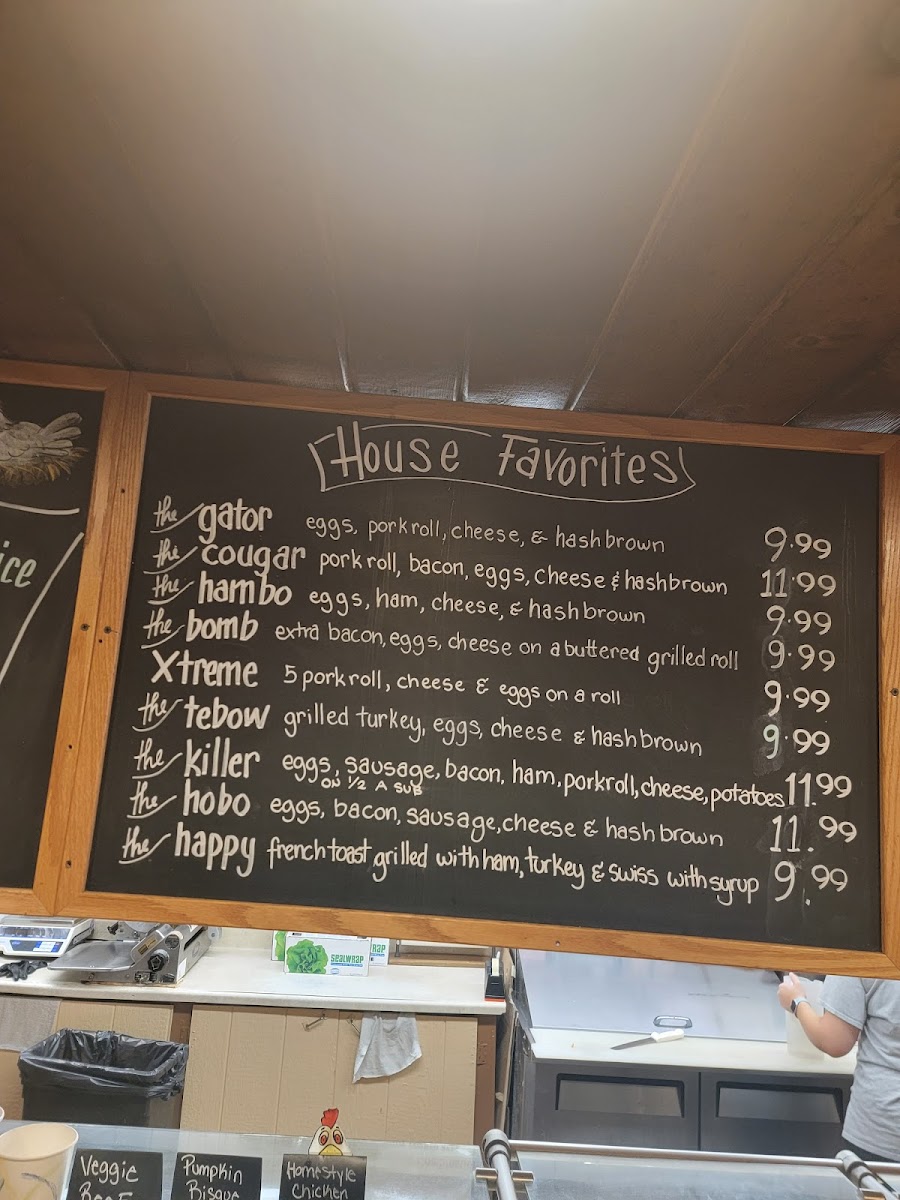 House Favorites
the gator eggs, porkroll, cheese, & hashbrown 9.99
the cougar porkroll, bacon, eggs, cheese & hashbrown 11.99
the hambo eggs, ham, cheese, & hashbrown 9.99
the bomb extra bacon, eggs, cheese on a buttered grilled roll 9.99
Xtreme 5 porkroll, cheese & eggs on a roll 9.99
the tebow grilled turkey, eggs, cheese & hashbrown 9.99
the killer eggs, sausage, bacon, ham, porkroll, cheese, potatoes 11.99
ON 1/2 A SUB
the hobo eggs, bacon, sausage, cheese & hashbrown 11.99
the happy frenchtoast grilled with ham, turkey & swiss with syrup 9.99
ice
SEALWRAP
RAP
Veggie
Pumpkin
Bisque
Homestyle
Chicken